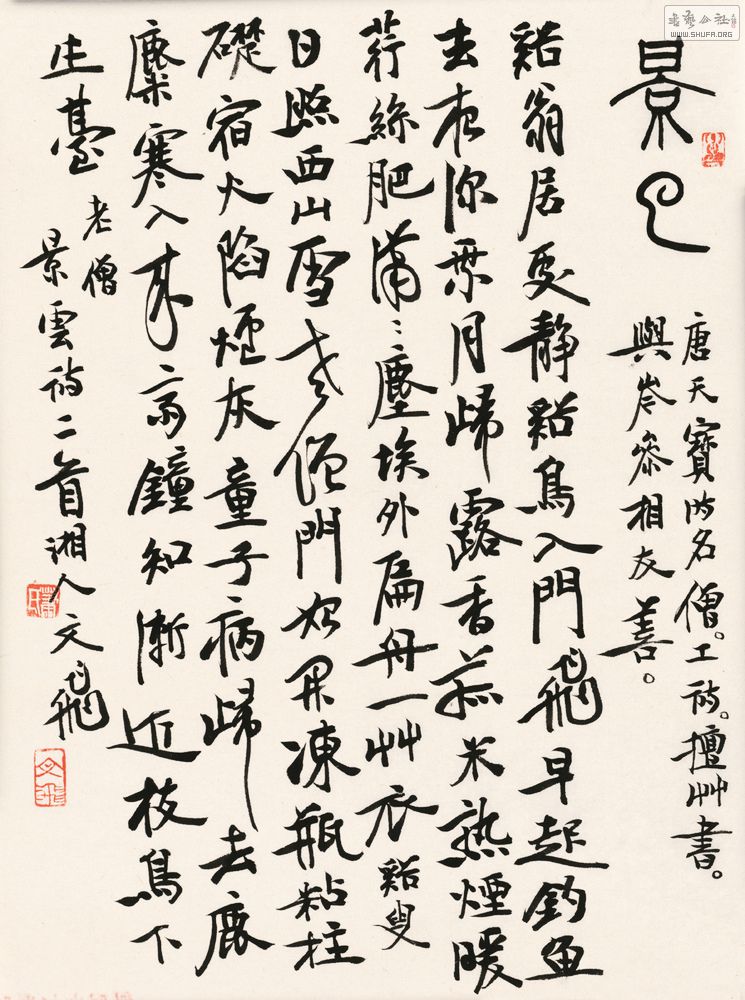 書藝公社
WWW.SHUFA.ORG
景云
唐天寶時名僧。工詩。擅艸書。
與岑參相友善。
谿翁居處靜谿鳥入門飛早起釣魚
去夜深乘月歸露香菰米熟煙暖
荇絲肥瀟〻塵埃外扁舟一艸衣 谿叟
日照西山雪老僧門始開凍瓶粘柱
礎宿火陷炉灰童子病歸去鹿
麋寒入來齋鐘知漸近枝鳥下
生臺 老僧
景雲詩二首湘人文飛